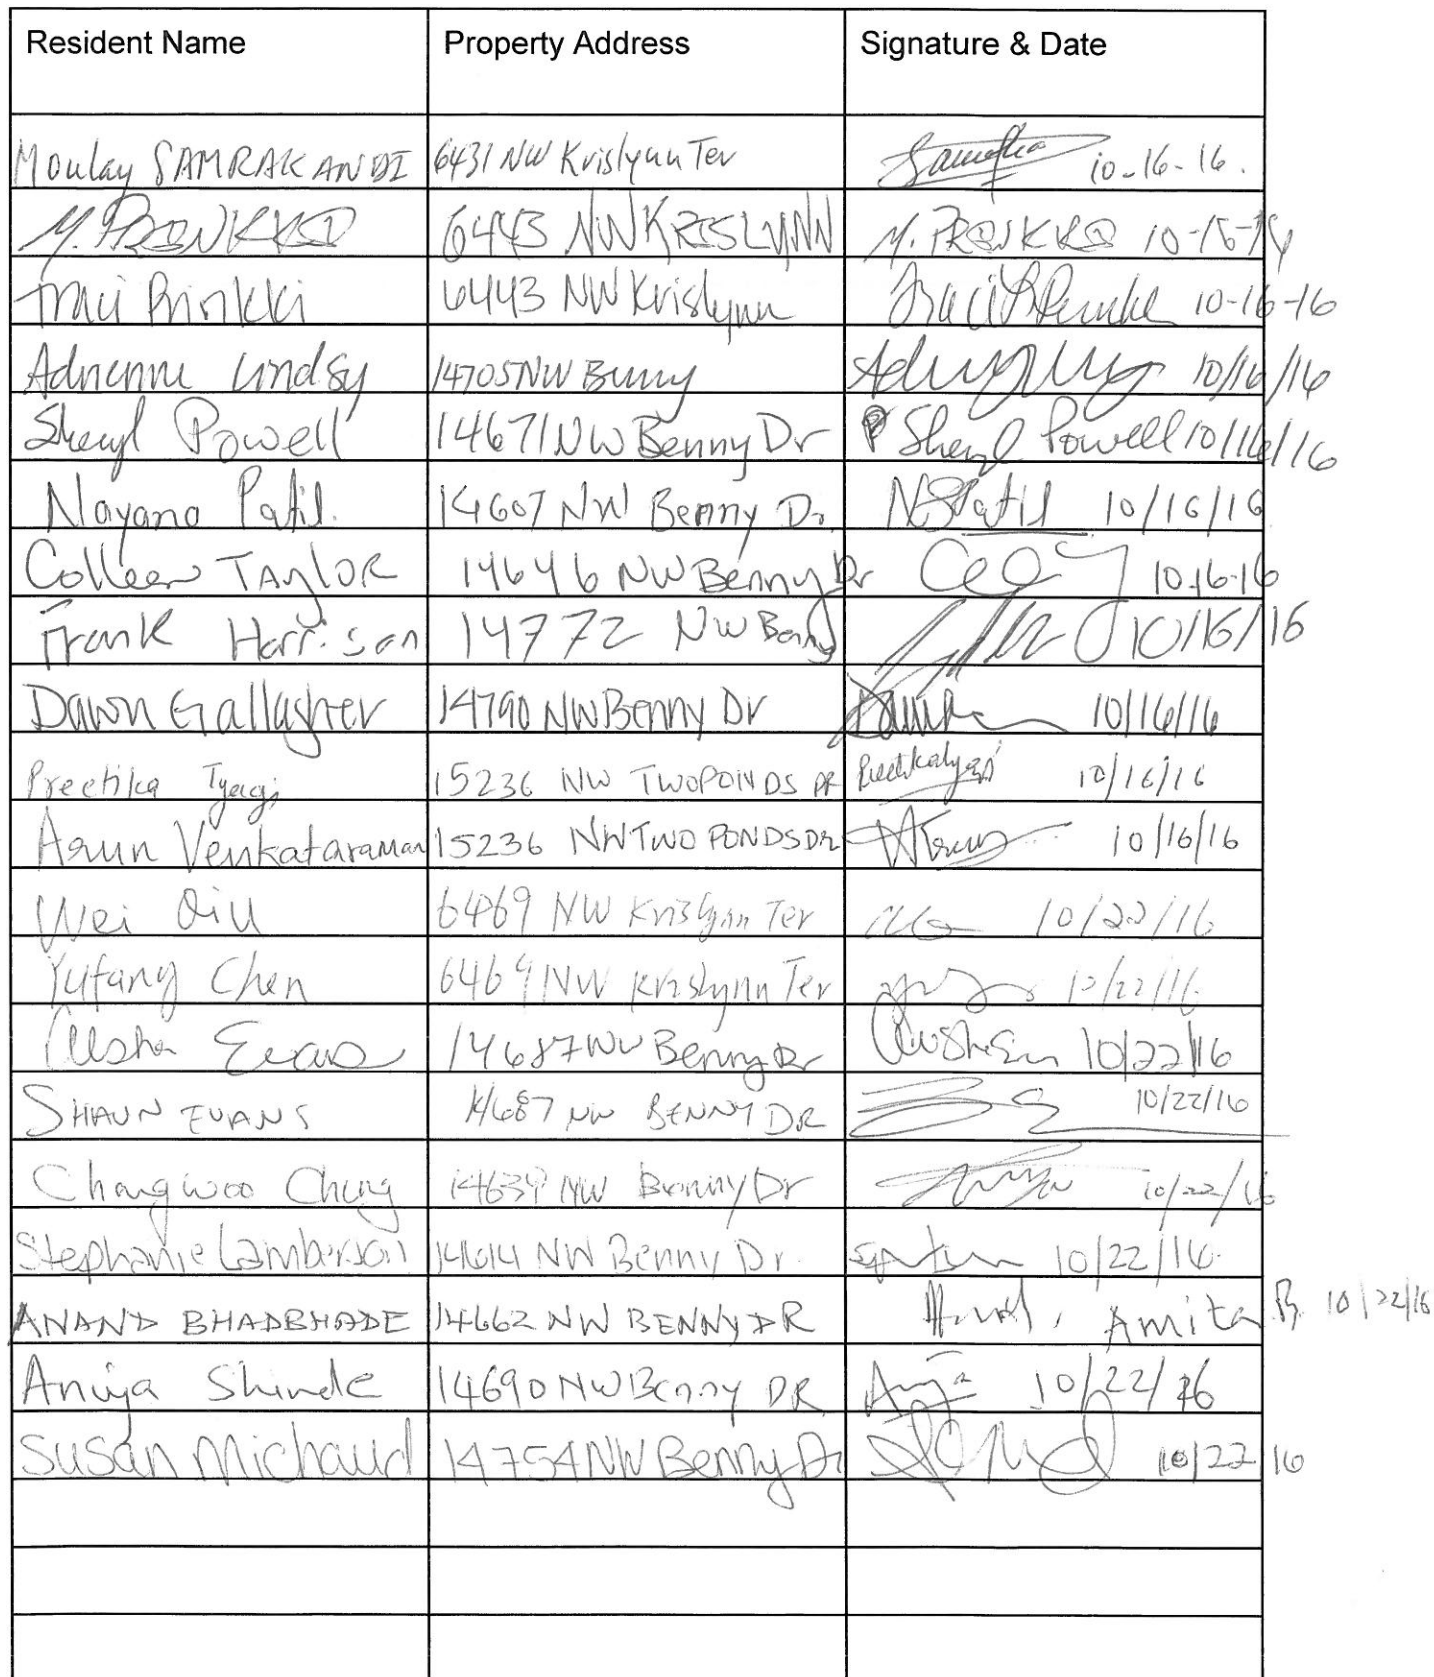 Resident Name Property Address Signature & Date
Moulay SAMRAKANDI 6431 NW Krislynn Ter 10-16-16.
M. 6443 NW KRISLYNN M. 10-15-16
Traci Prinkki 6443 NW Krislynn 10-16-16
Adrienne Lindsy 14705 NW Benny 10/16/16
Sheryl Powell 14671 NW Benny Dr Sheryl Powell 10/16/16
Nayana Patil. 14607 NW Benny Dr. NSPatil 10/16/16
Colleen TAylOR 14646 NW Benny Dr 10-16-16
Frank Harrison 14772 NW Benny 10/16/16
Dawn Gallagher 14790 NW Benny Dr 10/16/16
Preetika Tyagi 15236 NW TWOPONDS DR 10/16/16
Arun Venkataraman 15236 NW TWO PONDS DR 10/16/16
Wei Qiu 6469 NW Krislynn Ter 10/22/16
Yufang Chen 6469 NW Krislynn Ter 10/22/16
Evans 14687 NW Benny Dr 10/22/16
SHAUN EVANS 14687 NW BENNY DR 10/22/16
Changwoo Chung NW Benny Dr 10/22/16
Stephanie Lamberson 14614 NW Benny Dr. 10/22/16
ANAND BHADBHADE 14662 NW BENNY DR Amita B. 10/22/16
Anuja Shinde 14690 NW Benny DR 10/22/16
Susan Michaud 14754 NW Benny Dr 10/22/16